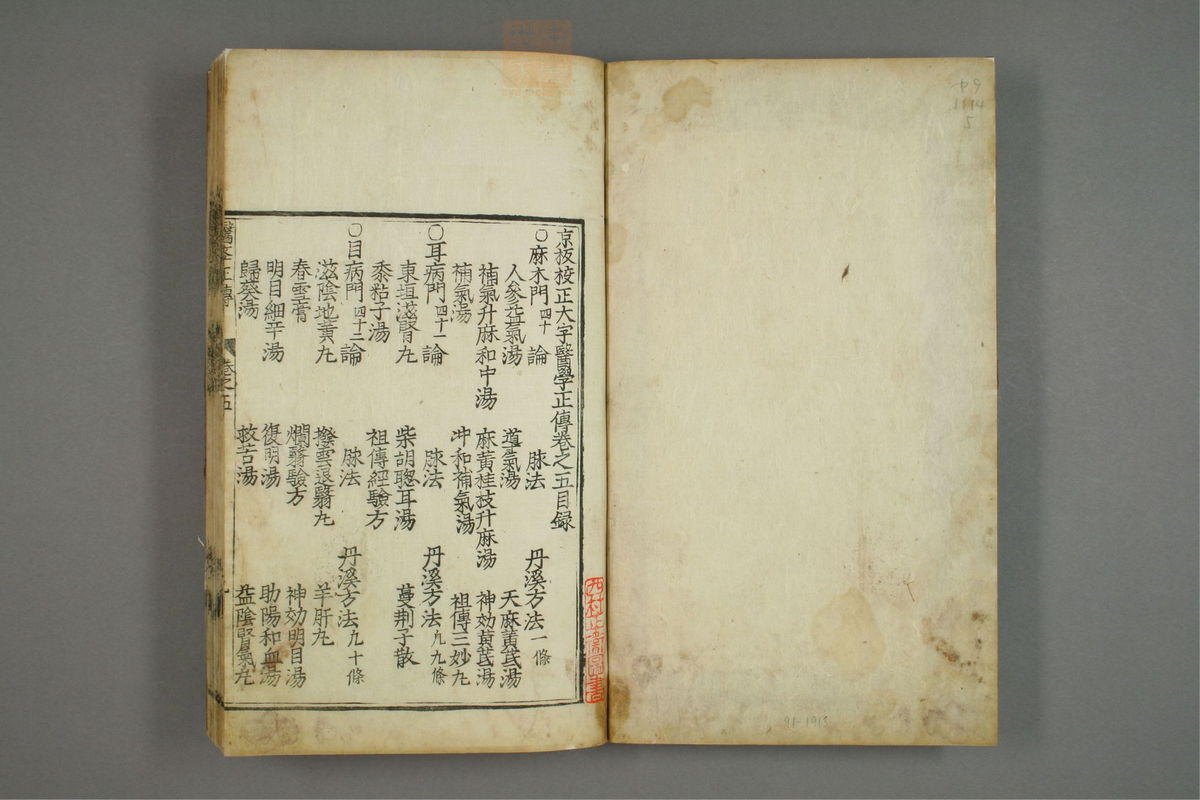 京板校正大字醫學正傳卷之五目録
○麻木門 四十 論 脉法 丹溪方法 一條
人參益氣湯 導氣湯 天麻黄茋湯
補氣升麻和中湯 麻黄桂枝升麻湯 神効黄茋湯
補氣湯 冲和補氣湯 祖傳三妙丸
○耳病門 四十一 論 脉法 丹溪方法 凡九條
東垣滋腎丸 柴胡聦耳湯 蔓荆子散
黍粘子湯 祖傳經驗方
○目病門 四十二 論 脉法 丹溪方法 凡十條
滋陰地黄丸 撥雲退翳丸 羊肝丸
春雪膏 爛翳驗方 神効明目湯
明目細辛湯 復明湯 助陽和血湯
歸葵湯 救苦湯 益陰腎氣丸
醫學正傳 卷之五 一
1114
5
91-1913